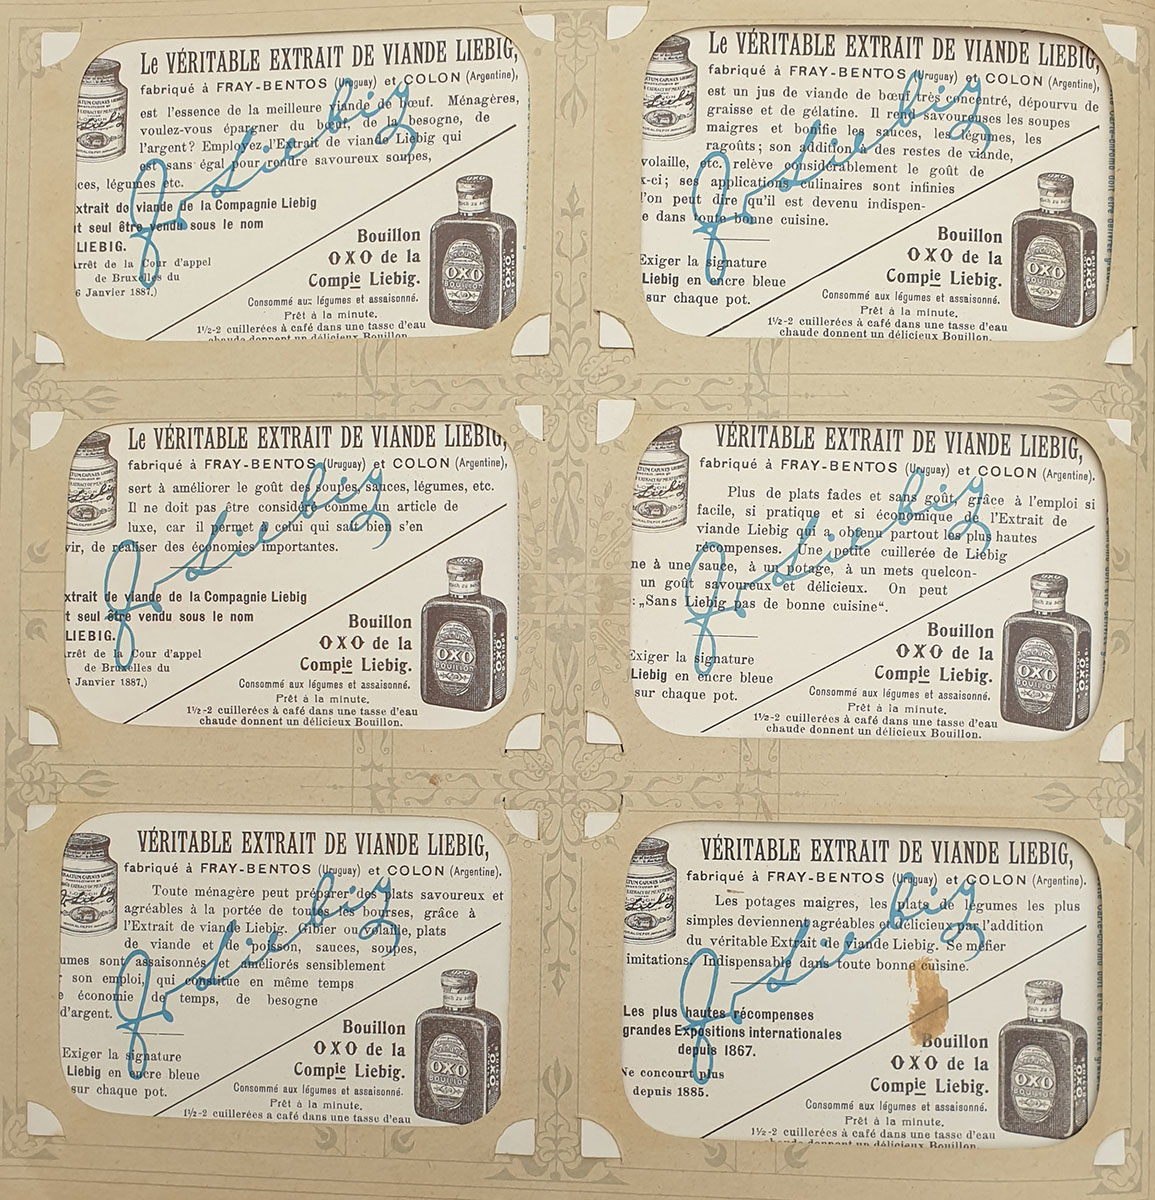 Le VÉRITABLE EXTRAIT DE VIANDE LIEBIG,
fabriqué à FRAY-BENTOS (Uruguay) et COLON (Argentine),
est l'essence de la meilleure viande de bœuf. Ménagères,
voulez-vous épargner du bœuf, de la besogne, de
l'argent? Employez l'Extrait de viande Liebig qui
est sans égal pour rendre savoureux soupes,
ces, légumes etc.
xtrait de viande de la Compagnie Liebig
t seul être vendu sous le nom
LIEBIG.
Arrêt de la Cour d'appel
de Bruxelles du
6 Janvier 1887.)
Liebig
J. v. Liebig
Bouillon
OXO de la
Compie Liebig.
Consommé aux légumes et assaisonné.
Prêt à la minute.
1½-2 cuillerées à café dans une tasse d'eau
chaude donnent un délicieux Bouillon.
OXO
BOUILLON
Le VÉRITABLE EXTRAIT DE VIANDE LIEBIG,
fabriqué à FRAY-BENTOS (Uruguay) et COLON (Argentine),
est un jus de viande de bœuf très concentré, dépourvu de
graisse et de gélatine. Il rend savoureuses les soupes
maigres et bonifie les sauces, les légumes, les
ragoûts; son addition à des restes de viande,
volaille, etc. relève considérablement le goût de
x-ci; ses applications culinaires sont infinies
l'on peut dire qu'il est devenu indispen-
e dans toute bonne cuisine.
Exiger la signature
Liebig en encre bleue
sur chaque pot.
Liebig
J. v. Liebig
Bouillon
OXO de la
Compie Liebig.
Consommé aux légumes et assaisonné.
Prêt à la minute.
1½-2 cuillerées à café dans une tasse d'eau
chaude donnent un délicieux Bouillon.
OXO
BOUILLON
Le VÉRITABLE EXTRAIT DE VIANDE LIEBIG,
fabriqué à FRAY-BENTOS (Uruguay) et COLON (Argentine),
sert à améliorer le goût des soupes, sauces, légumes, etc.
Il ne doit pas être considéré comme un article de
luxe, car il permet à celui qui sait bien s'en
vir, de réaliser des économies importantes.
xtrait de viande de la Compagnie Liebig
t seul être vendu sous le nom
LIEBIG.
rrêt de la Cour d'appel
de Bruxelles du
Janvier 1887.)
Liebig
J. v. Liebig
Bouillon
OXO de la
Compie Liebig.
Consommé aux légumes et assaisonné.
Prêt à la minute.
1½-2 cuillerées à café dans une tasse d'eau
chaude donnent un délicieux Bouillon.
OXO
BOUILLON
VÉRITABLE EXTRAIT DE VIANDE LIEBIG,
fabriqué à FRAY-BENTOS (Uruguay) et COLON (Argentine).
Plus de plats fades et sans goût, grâce à l'emploi si
facile, si pratique et si économique de l'Extrait de
viande Liebig qui a obtenu partout les plus hautes
récompenses. Une petite cuillerée de Liebig
ne à une sauce, à un potage, à un mets quelcon-
un goût savoureux et délicieux. On peut
: „Sans Liebig pas de bonne cuisine“.
Exiger la signature
Liebig en encre bleue
sur chaque pot.
Liebig
J. v. Liebig
Bouillon
OXO de la
Compie Liebig.
Consommé aux légumes et assaisonné.
Prêt à la minute.
1½-2 cuillerées à café dans une tasse d'eau
chaude donnent un délicieux Bouillon.
OXO
BOUILLON
VÉRITABLE EXTRAIT DE VIANDE LIEBIG,
fabriqué à FRAY-BENTOS (Uruguay) et COLON (Argentine).
Toute ménagère peut préparer des plats savoureux et
agréables à la portée de toutes les bourses, grâce à
l'Extrait de viande Liebig. Gibier ou volaille, plats
de viande et de poisson, sauces, soupes,
umes sont assaisonnés et améliorés sensiblement
son emploi, qui constitue en même temps
e économie de temps, de besogne
d'argent.
Exiger la signature
Liebig en encre bleue
sur chaque pot.
Liebig
J. v. Liebig
Bouillon
OXO de la
Compie Liebig.
Consommé aux légumes et assaisonné.
Prêt à la minute.
1½-2 cuillerées a café dans une tasse d'eau
OXO
BOUILLON
VÉRITABLE EXTRAIT DE VIANDE LIEBIG,
fabriqué à FRAY-BENTOS (Uruguay) et COLON (Argentine).
Les potages maigres, les plats de légumes les plus
simples deviennent agréables et délicieux par l'addition
du véritable Extrait de viande Liebig. Se méfier
imitations. Indispensable dans toute bonne cuisine.
Les plus hautes récompenses
grandes Expositions internationales
depuis 1867.
Ne concourt plus
depuis 1885.
Liebig
J. v. Liebig
Bouillon
OXO de la
Compie Liebig.
Consommé aux légumes et assaisonné.
Prêt à la minute.
1½-2 cuillerées à café dans une tasse d'eau
chaude donnent un délicieux Bouillon.
OXO
BOUILLON